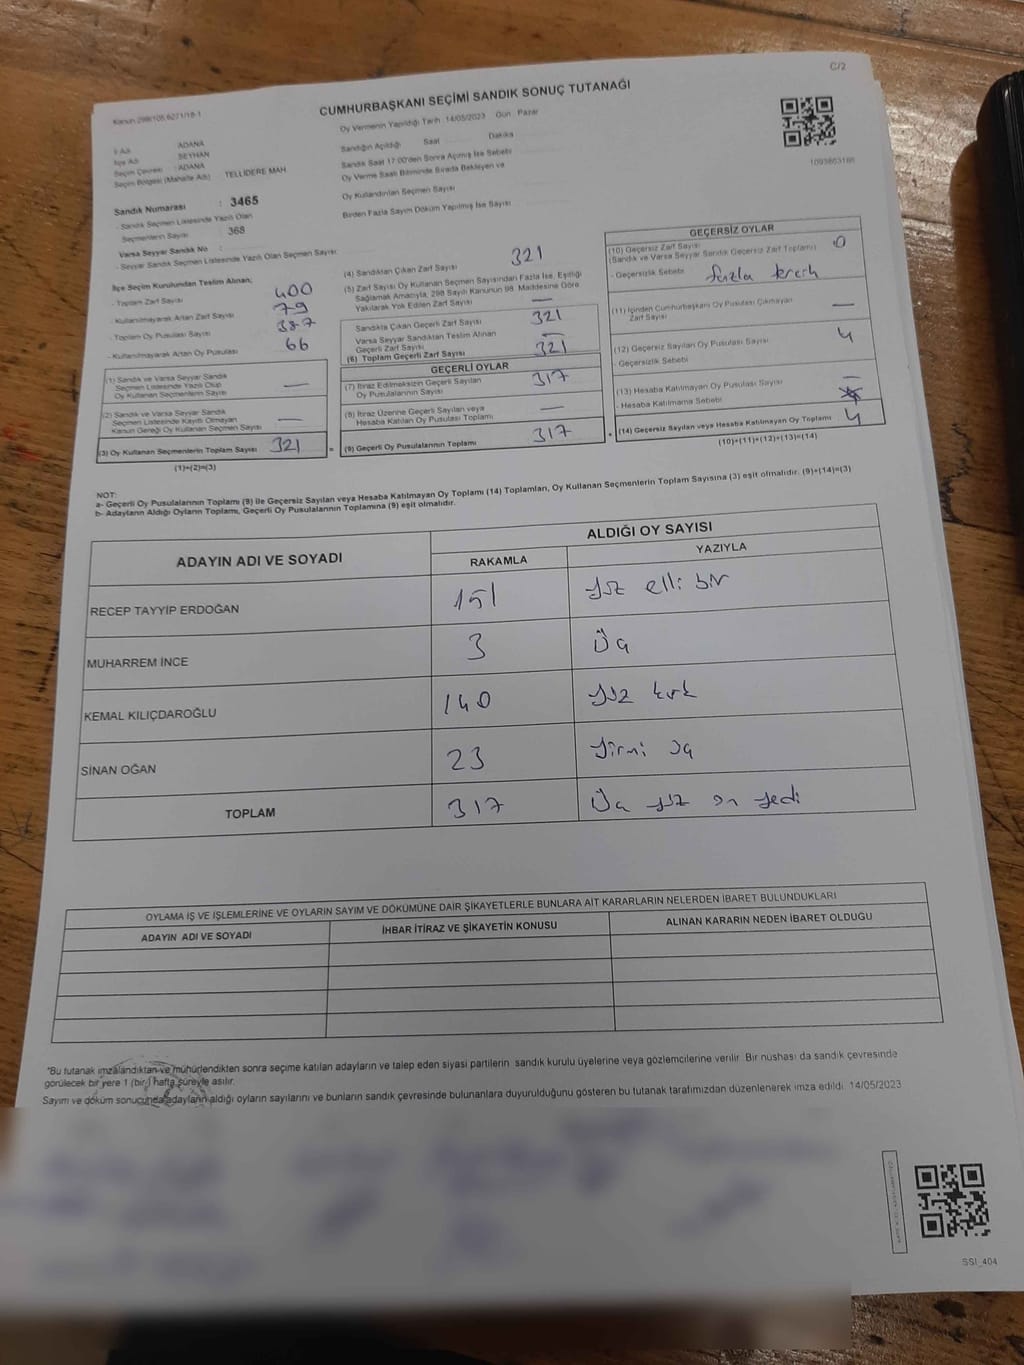 C/2
Kanun 298/105 6271/18-1
CUMHURBAŞKANI SEÇİMİ SANDIK SONUÇ TUTANAĞI
İl Adı : ADANA
İlçe Adı : SEYHAN
Seçim Çevresi : ADANA
Seçim Bölgesi (Mahalle Adı) TELLİDERE MAH
Oy Vermenin Yapıldığı Tarih :14/05/2023 Gün : Pazar
Sandığın Açıldığı Saat Dakika
Sandık Saat 17:00'den Sonra Açılmış İse Sebebi
Oy Verme Saati Bitiminde Sırada Bekleyen ve
Oy Kullandırılan Seçmen Sayısı
Birden Fazla Sayım Döküm Yapılmış İse Sayısı
Sandık Numarası : 3465
- Sandık Seçmen Listesinde Yazılı Olan
Seçmenlerin Sayısı : 368
Varsa Seyyar Sandık No :
- Seyyar Sandık Seçmen Listesinde Yazılı Olan Seçmen Sayısı
İlçe Seçim Kurulundan Teslim Alınan;
- Toplam Zarf Sayısı 400
- Kullanılmayarak Artan Zarf Sayısı 79
- Toplam Oy Pusulası Sayısı 387
- Kullanılmayarak Artan Oy Pusulası 66
(1) Sandık ve Varsa Seyyar Sandık
Seçmen Listesinde Yazılı Olup
Oy Kullanan Seçmenlerin Sayısı —
(2) Sandık ve Varsa Seyyar Sandık
Seçmen Listesinde Kayıtlı Olmayan
Kanun Gereği Oy Kullanan Seçmen Sayısı —
(3) Oy Kullanan Seçmenlerin Toplam Sayısı 321
(1)+(2)=(3)
(4) Sandıktan Çıkan Zarf Sayısı 321
(5) Zarf Sayısı Oy Kullanan Seçmen Sayısından Fazla İse, Eşitliği
Sağlamak Amacıyla, 298 Sayılı Kanunun 98. Maddesine Göre
Yakılarak Yok Edilen Zarf Sayısı —
Sandıkta Çıkan Geçerli Zarf Sayısı 321
Varsa Seyyar Sandıktan Teslim Alınan
Geçerli Zarf Sayısı —
(6) Toplam Geçerli Zarf Sayısı 321
GEÇERLİ OYLAR
(7) İtiraz Edilmeksizin Geçerli Sayılan
Oy Pusulasının Sayısı 317
(8) İtiraz Üzerine Geçerli Sayılan veya
Hesaba Katılan Oy Pusulası Toplamı —
(9) Geçerli Oy Pusulalarının Toplamı 317
1093863186
GEÇERSİZ OYLAR
(10) Geçersiz Zarf Sayısı 0
(Sandık ve Varsa Seyyar Sandık Geçersiz Zarf Toplamı)
- Geçersizlik Sebebi fazla tercih
(11) İçinden Cumhurbaşkanı Oy Pusulası Çıkmayan
Zarf Sayısı —
(12) Geçersiz Sayılan Oy Pusulası Sayısı 4
- Geçersizlik Sebebi
(13) Hesaba Katılmayan Oy Pusulası Sayısı —
- Hesaba Katılmama Sebebi
(14) Geçersiz Sayılan veya Hesaba Katılmayan Oy Toplamı 4
(10)+(11)+(12)+(13)=(14)
NOT:
a- Geçerli Oy Pusulalarının Toplamı (9) ile Geçersiz Sayılan veya Hesaba Katılmayan Oy Toplamı (14) Toplamları, Oy Kullanan Seçmenlerin Toplam Sayısına (3) eşit olmalıdır. (9)+(14)=(3)
b- Adayların Aldığı Oyların Toplamı, Geçerli Oy Pusulalarının Toplamına (9) eşit olmalıdır.
ADAYIN ADI VE SOYADI
ALDIĞI OY SAYISI
RAKAMLA YAZIYLA
RECEP TAYYİP ERDOĞAN 151 yüz elli bir
MUHARREM İNCE 3 Üç
KEMAL KILIÇDAROĞLU 140 yüz kırk
SİNAN OĞAN 23 yirmi üç
TOPLAM 317 Üç yüz on yedi
OYLAMA İŞ VE İŞLEMLERİNE VE OYLARIN SAYIM VE DÖKÜMÜNE DAİR ŞİKAYETLERLE BUNLARA AİT KARARLARIN NELERDEN İBARET BULUNDUKLARI
ADAYIN ADI VE SOYADI İHBAR İTİRAZ VE ŞİKAYETİN KONUSU ALINAN KARARIN NEDEN İBARET OLDUĞU
"Bu tutanak imzalandıktan ve mühürlendikten sonra seçime katılan adayların ve talep eden siyasi partilerin sandık kurulu üyelerine veya gözlemcilerine verilir. Bir nüshası da sandık çevresinde
görülecek bir yere 1 (bir) hafta süreyle asılır.
Sayım ve döküm sonucunda adayların aldığı oyların sayılarını ve bunların sandık çevresinde bulunanlara duyurulduğunu gösteren bu tutanak tarafımızdan düzenlenerek imza edildi. 14/05/2023
SSI_404